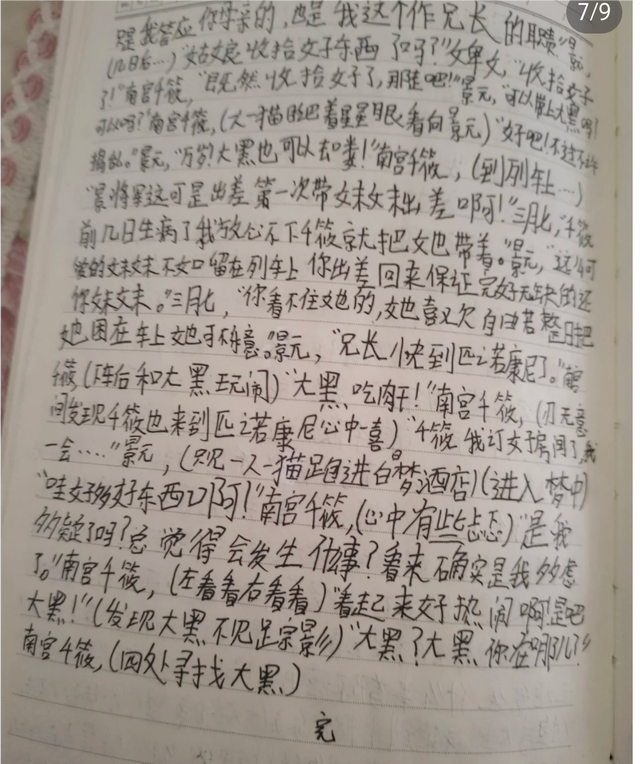 7/9
是我答应你母亲的,也是我这个作兄长的职责"景元,
(几日后…)"姑娘收拾好东西了吗?"女婢女,"收拾好
了!"南宫千筱,"既然收拾好了,那走吧!"景元,"可以带上大黑吗?
可以吗?"南宫千筱,(一人一猫眼巴巴着星星眼看向景元)"好吧!不过不许
捣乱。"景元,"万岁!大黑也可以去喽!"南宫千筱,(到列车上…)
"景将军这可是出差第一次带妹妹出差啊!"三月七,"千筱
前几日生病了我放心不下千筱就把她也带着。"景元,"这么可
爱的妹妹不如留在列车上你出差回来保证完好无缺的还
你妹妹。"三月七,"你看不住她的,她喜欢自由若整日把
她困在车上她可不愿意。"景元,"兄长小快到匹诺康尼了。"南宫
千筱,(下车后和大黑玩闹)"大黑吃肉干!"南宫千筱,(刃无意
间发现千筱也来到匹诺康尼心中一喜)"千筱我订好房间了,我
一会……"景元,(只见一人一猫跑进白梦酒店)(进入梦中)
"哇好多好东西啊!"南宫千筱,(心中有些忐忑)"是我
多疑了吗?总觉得会发生什事?看来确实是我多虑
了。"南宫千筱,(左看看右看看)"看起来好热闹啊是吧
大黑!"(发现大黑不见踪影)"大黑?大黑你在哪儿?"
南宫千筱,(四处寻找大黑)
完